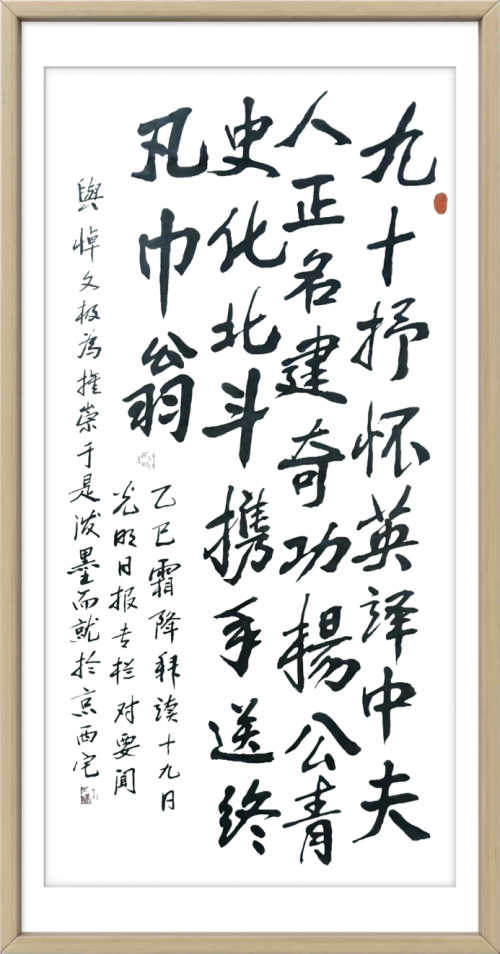 九十抒怀英譯中夫
人正名建奇功揚公青
史化北斗携手送终
凡巾翁
乙巳霜降拜读十九日
光明日报专栏对要闻
與悼文极為推崇于是泼墨而就於京西宅